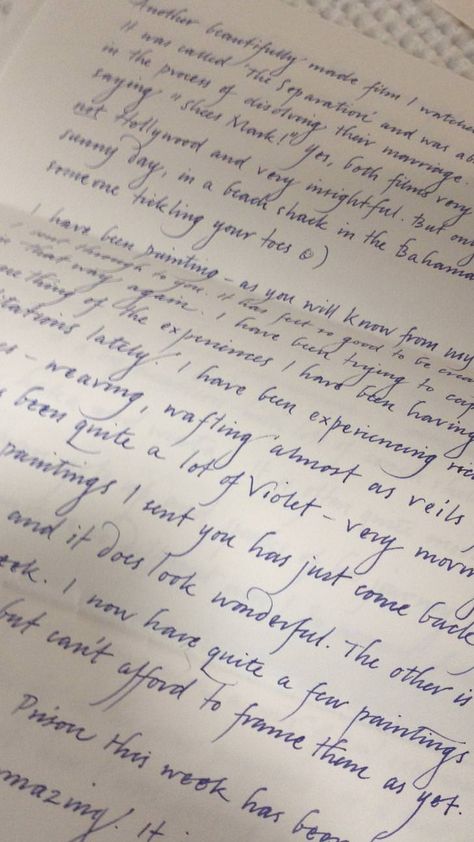 Another beautifully made film I watched
It was called 'The Separation' and was ab
in the process of disolving their marriage.
saying "shees Mark!" Yes, both films very
not Hollywood and very insightful. But only
sunny day, in a beach shack in the Bahama
someone tickling your toes ☺)
I have been painting – as you will know from my
I sent through to you. It has felt so good to be crea
in that way again. I have been trying to capt
some thing of the experiences I have been having
itations lately. I have been experiencing
es – weaving, wafting almost as veils
been quite a lot of Violet – very
paintings I sent you has just come back
and it does look wonderful. The other is
eek. I now have quite a few paintings
but can't afford to frame them as yet.
Prison this week has been
mazing! It